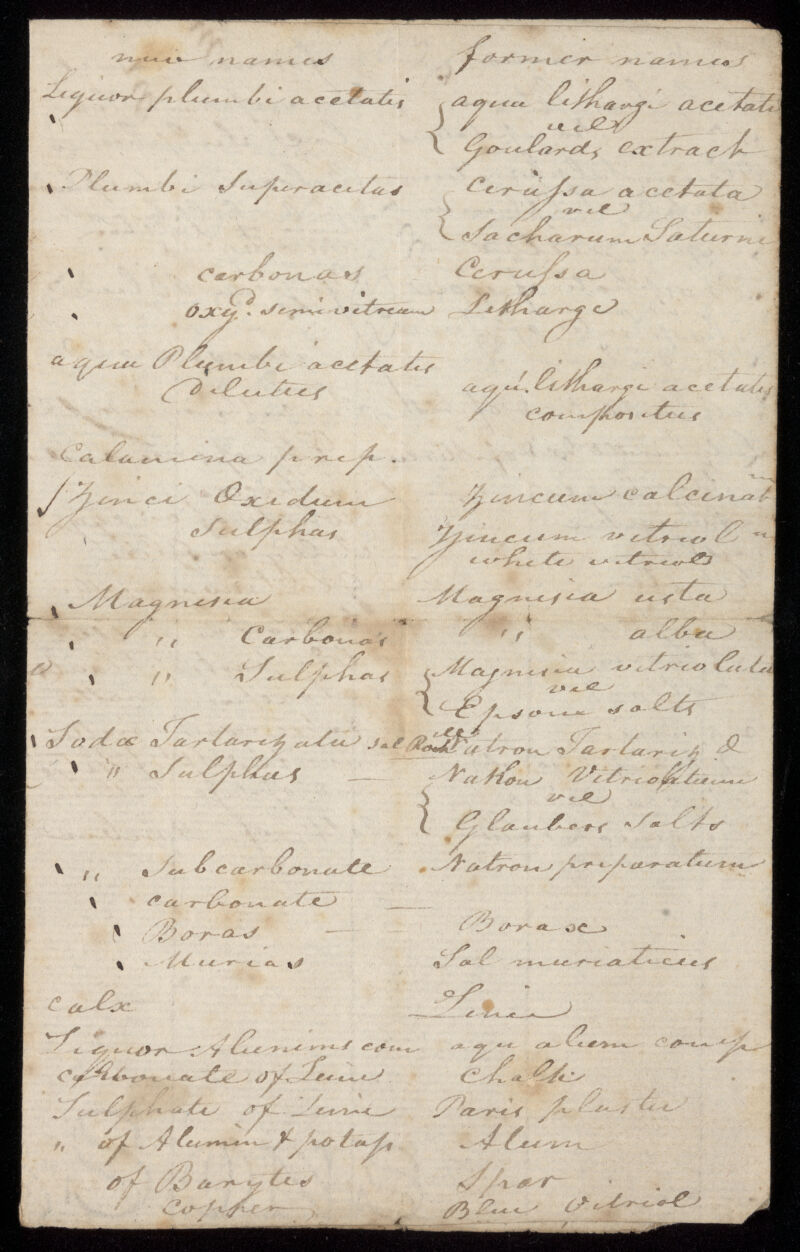 new names former names
Liquor plumbi acetatis aqua lithargi acetati
vel
Goulards extract
Plumbi Superacetas Cerussa acetata
vel
Sacharum Saturni
carbonas Cerussa
oxyd. semivitreum Litharge
aqua Plumbi acetatis
Dilutus aqu. lithargi acetatis
compositus
Calamina prep.
Zinci Oxidum Zincum calcinat
Sulphas Zincum vitriol
white vitriol
Magnesia Magnesia usta
" Carbonas " alba
" Sulphas Magnesia vitriolata
vel
Epsom salts
Sodæ Tartarizata Sal Roch Natron Tartariz d
" Sulphas — Natron Vitriolatum
vel
Glaubers Salts
" Subcarbonate Natron preparatum
carbonate —
Boras — Borax
Murias Sal muriaticus
calx Lime
Liquor Aluminis com aqu alum comp
carbonate of Lime Chalk
Sulphate of Lime Paris plaster
" of Alumin & potass Alum
of Barytes Spar
Copper Blue Vitriol